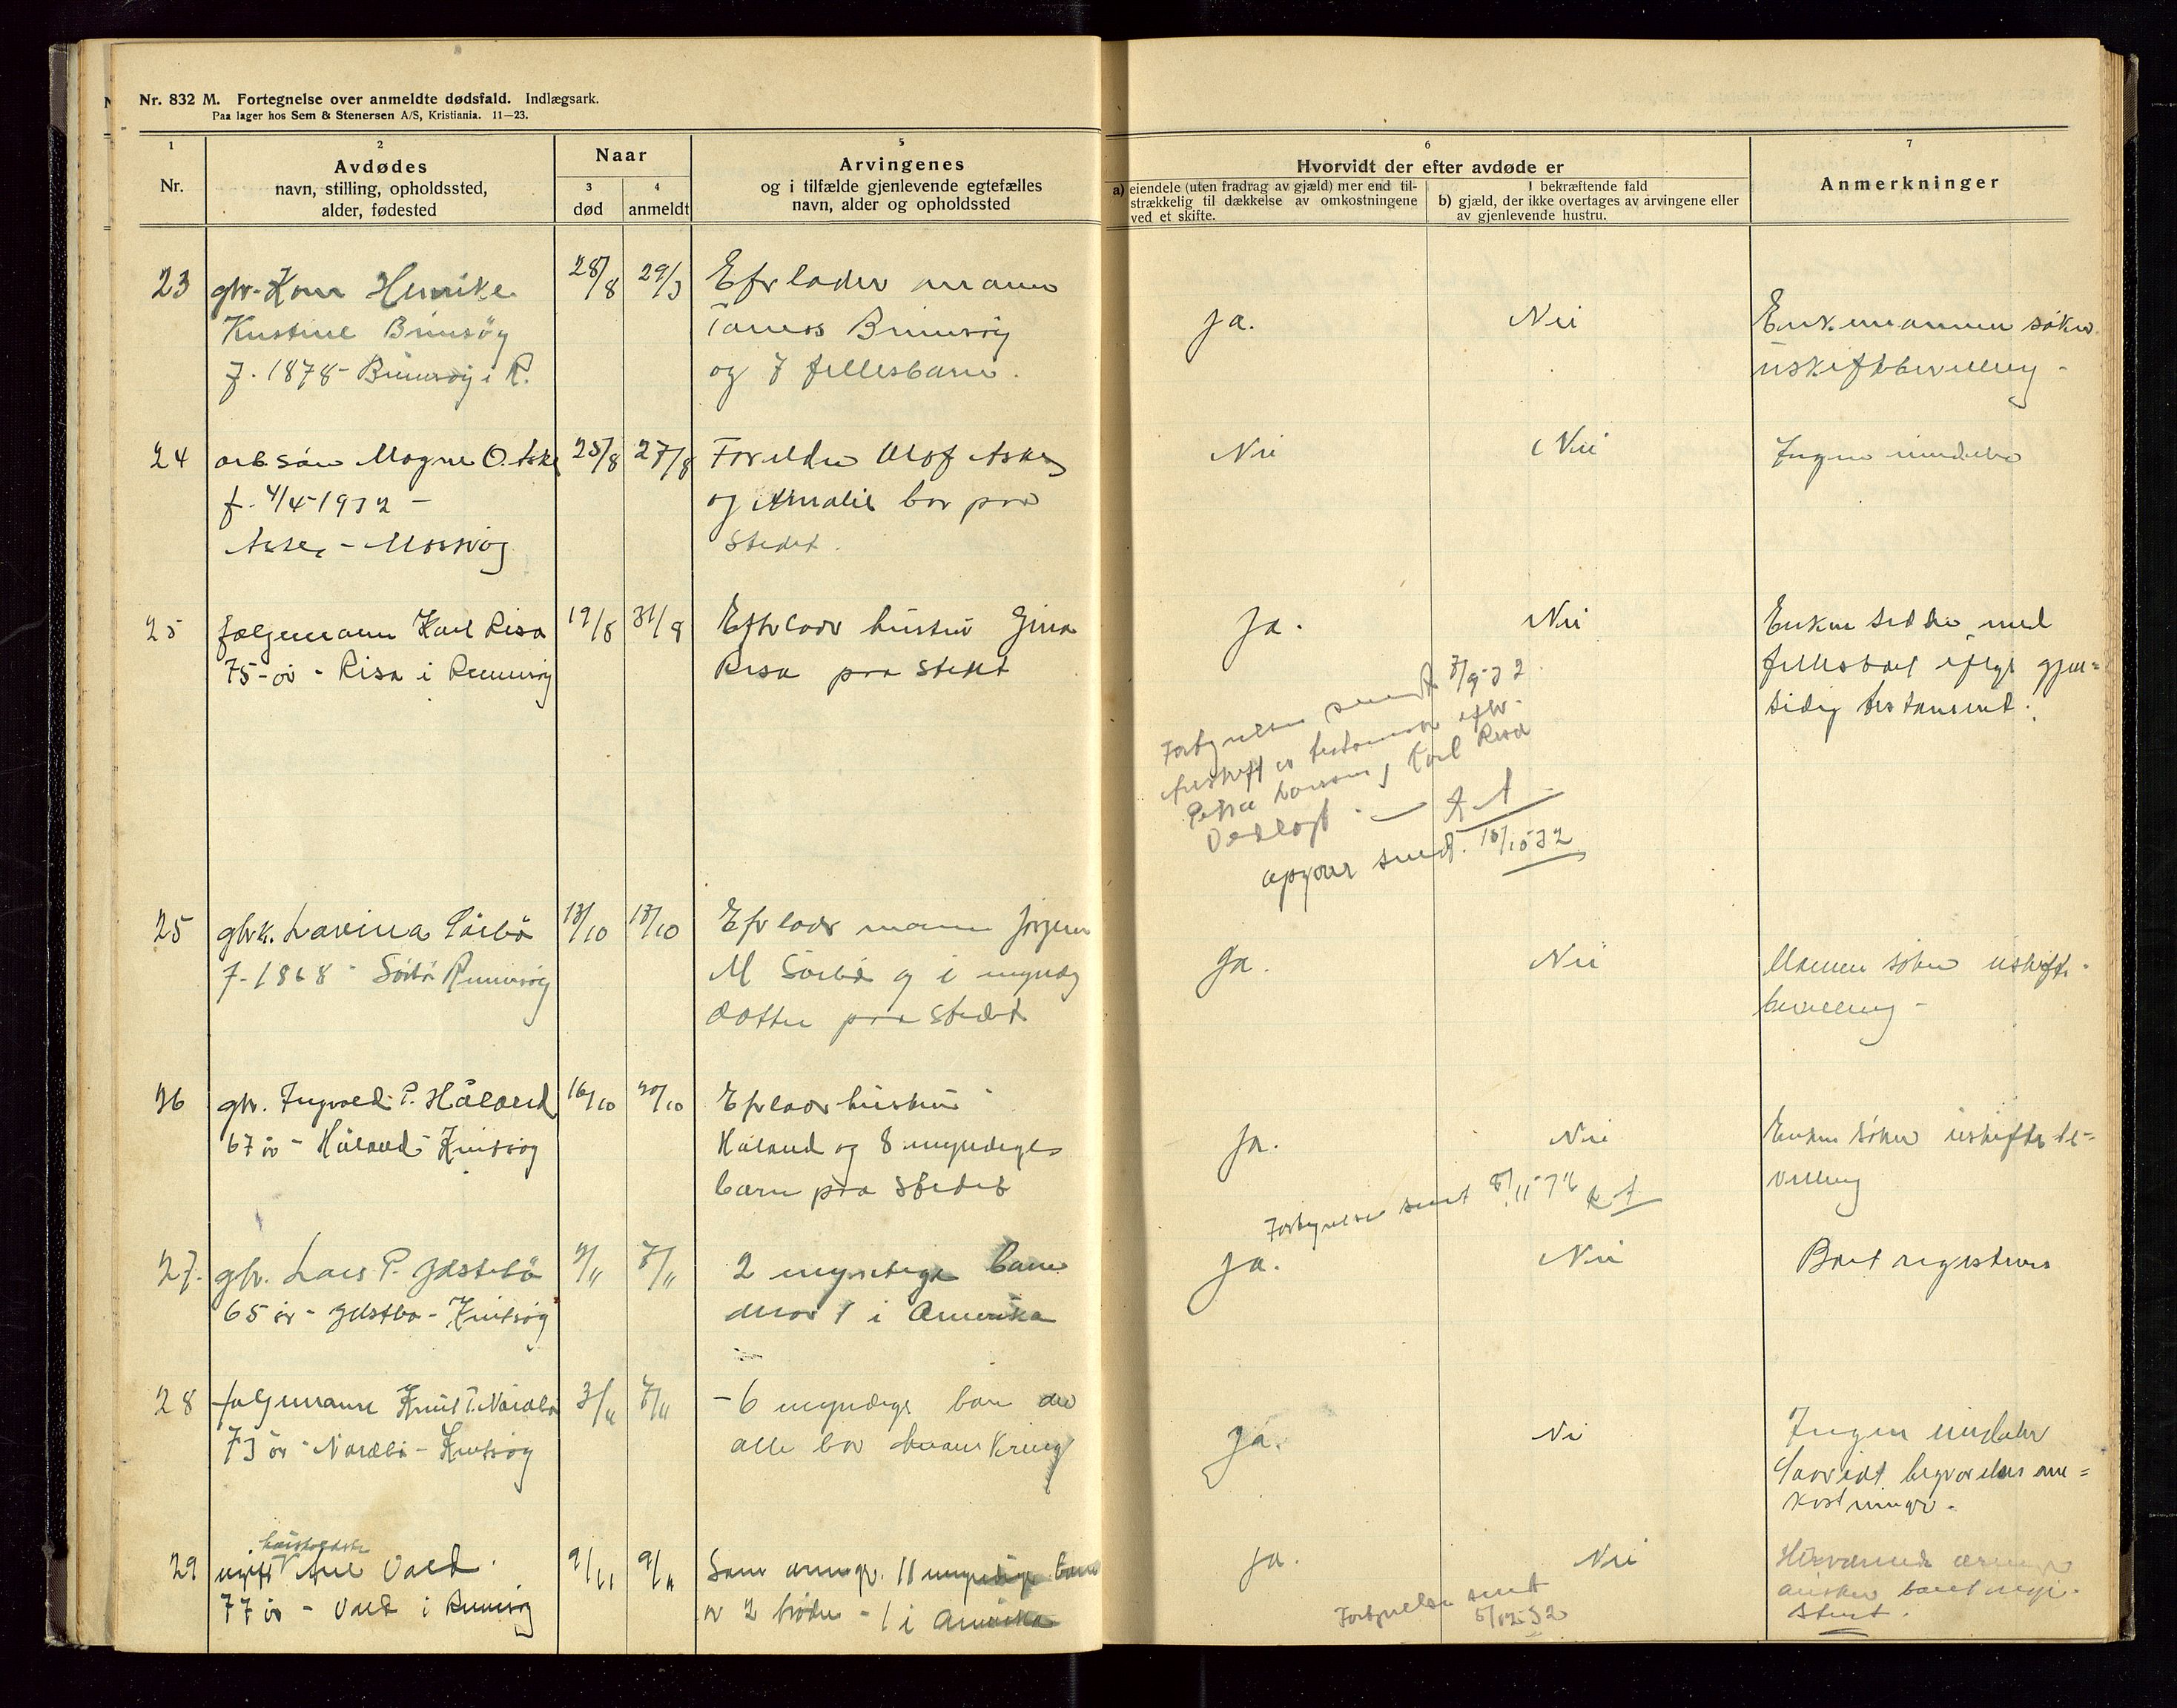 Nr. 832 M. Fortegnelse over anmeldte dødsfald. Indlægsark.
Paa lager hos Sem & Stenersen A/S, Kristiania. 11—23.
1
Nr.
2
Avdødes
navn, stilling, opholdssted,
alder, fødested
Naar
3
død
4
anmeldt
5
Arvingenes
og i tilfælde gjenlevende egtefælles
navn, alder og opholdssted
6
Hvorvidt der efter avdøde er
a) eiendele (uten fradrag av gjæld) mer end til-
strækkelig til dækkelse av omkostningene
ved et skifte.
I bekræftende fald
b) gjæld, der ikke overtages av arvingene eller
av gjenlevende hustru.
7
Anmerkninger
23
gbr. Kone Henrike
Kristine Brimsøy
f. 1878 - Brimsøy i R.
28/8
Efterlader mann
Brimsøy
og 7 fellesbarn.
Ja.
Nei
Enkemannen søker
uskiftebevilling -
24
arb. søn Magne O. Aske
f. 4/4 1932 -
Aske - Mosterøy
25/8
27/8
Foreldre Olof Aske
og Amalie bor paa
stedet.
Nei
Nei
Ingen eiendeler
25
følgemann Karl Risa
75 år - Risa i Rennesøy
19/8
31/8
Efterlader hustru Gina
Risa paa stedet
Ja.
Nei
Enken sidder med
fellesboet ifølge gjen=
sidig testament.
Fortegnelse sendt 7/9-32
Avskrift av testament efter
Karl Risa
Vedlagt - A.T
opgave sendt 10/10-32
25
gbrk. Lavina Sørbø
f. 1868 - Sørbø Rennesøy
13/10
17/10
Efterlader mann Jørgen
M Sørbø og 1 myndig
datter paa stedet
Ja.
Nei
Mannen søker uskifte-
bevilling -
26
gbr. Ingvald P. Håland
67 år - Håland - Finnøy
16/10
20/10
Efterlader hustru
Håland og 8 myndige
barn paa stedet
Ja.
Nei
Enken søker uskifte be-
villing
Fortegnelse sendt 8/11-32
27.
gbr. Lars P.
65 år -
7/11
2 myndige barn
derav 1 i Amerika
Ja.
Nei
Boet registreres
28
følgemann Knut T. Nordbø
73 år - Nordbø -
3/11
7/11
- 6 myndige barn der
alle bor
Ja.
Nei
Ingen eiendeler
utover begravelses om=
kostninger.
29
husholderske
ugift Voll
77 år - Voll i Rennesøy
9/11
9/11
Som arvinger 11 myndige barn
av 2 brødre - 1 i Amerika
Ja.
Nei
arvinger
ønsker boet regi-
strert.
Fortegnelse sendt
5/12-32